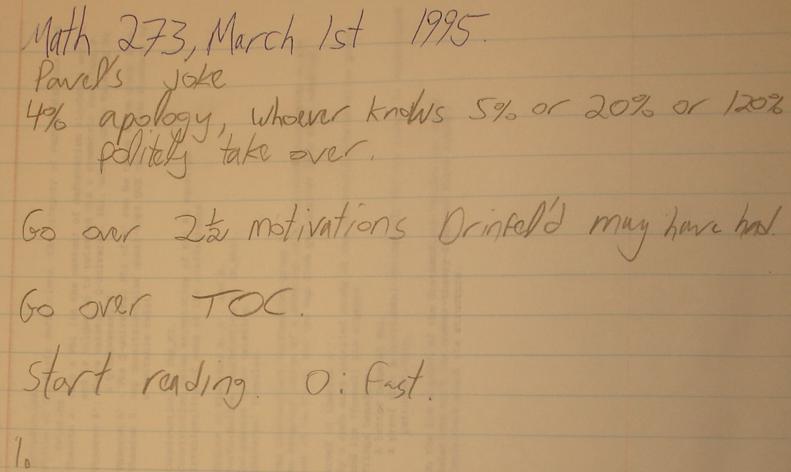 Math 273, March 1st 1995.
Pavel's joke
4% apology, whoever knows 5% or 20% or 120%
politely take over.
Go over 2½ motivations Drinfel'd may have had.
Go over TOC.
Start reading. 0: Fast.
1.